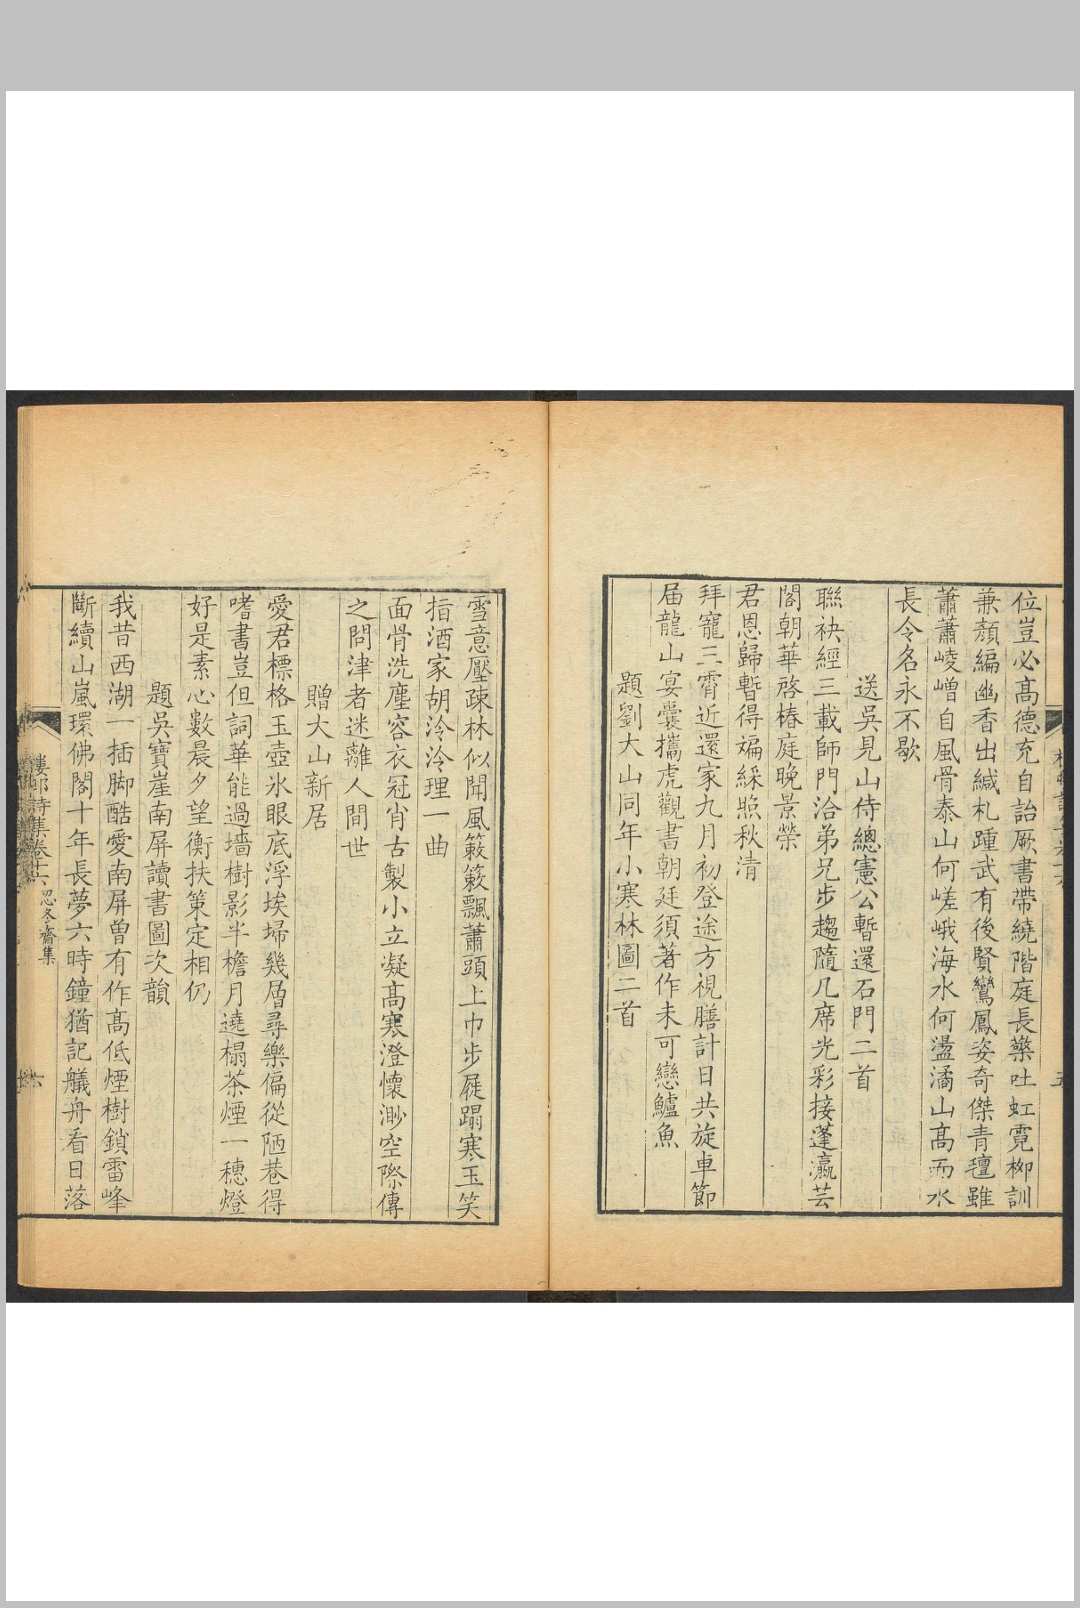 位豈必高德充自詒厥書帶繞階庭長藥吐虹霓柳訓
兼顏編幽香出緘札踵武有後賢鸞鳳姿奇傑青氊雖
蕭蕭崚嶒自風骨泰山何嵯峨海水何盪潏山高而水
長令名永不歇
送吳見山侍總憲公暫還石門二首
聯袂經三載師門洽弟兄步趨隨几席光彩接蓬瀛芸
閣朝華啓椿庭晚景榮
君恩歸暫得斒綵照秋清
拜寵三霄近還家九月初登途方視膳計日共旋車節
届龍山宴囊攜虎觀書朝廷須著作未可戀鱸魚
題劉大山同年小寒林圖二首
雪意壓疎林似聞風簌簌飄蕭頭上巾步屧蹋寒玉笑
指酒家胡泠泠理一曲
面骨洗塵容衣冠肖古製小立凝高寒澄懷渺空際傳
之問津者迷離人間世
贈大山新居
愛君標格玉壺氷眼底浮埃埽幾層尋樂偏從陋巷得
嗜書豈但詞華能過墻樹影半檐月遶榻茶煙一穗燈
好是素心數晨夕望衡扶策定相仍
題吳寶崖南屏讀書圖次韻
我昔西湖一插脚酷愛南屏曾有作高低煙樹鎖雷峰
斷續山嵐環佛閣十年長夢六時鐘猶記艤舟看日落
樓邨詩集卷十六 忍冬齋集 六